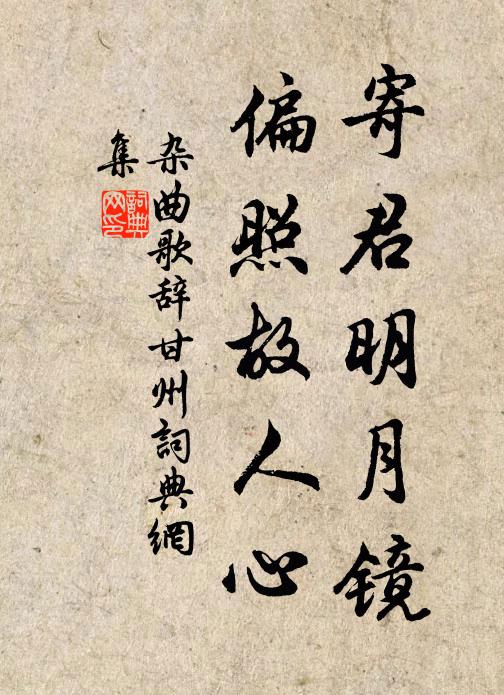 寄君明月镜
偏照故人心
杂曲歌辞甘州詞典網
集
詞典
网印